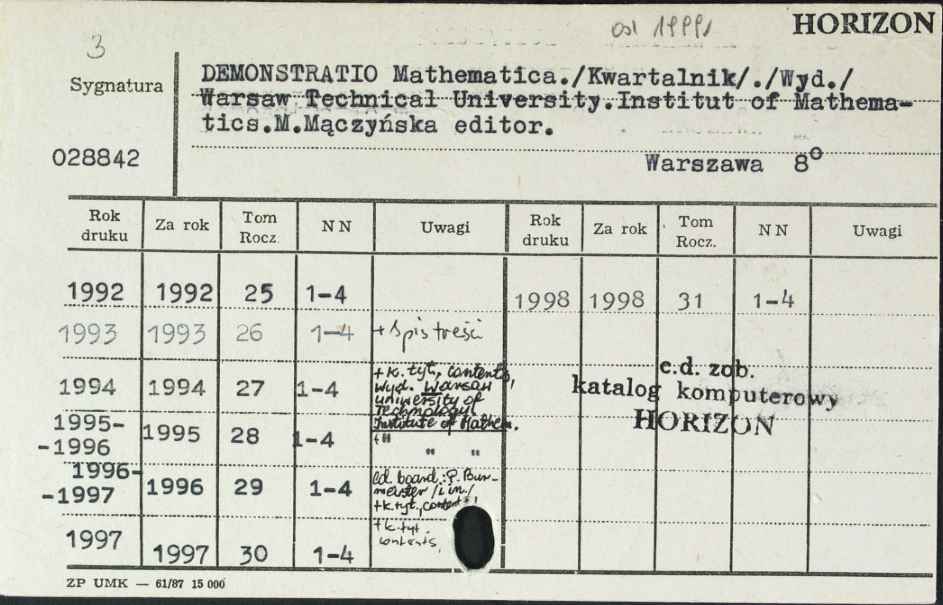 HORIZON
od 1999
3
Sygnatura
028842
DEMONSTRATIO Mathematica./Kwartalnik/./Wyd./
Warsaw Technical University.Institut of Mathema-
tics.M.Mączyńska editor.
Warszawa 8°
Rok druku Za rok Tom Rocz. NN Uwagi Rok druku Za rok Tom Rocz. NN Uwagi
1992 1992 25 1-4 1998 1998 31 1-4
1993 1993 26 1-4 +spis treści
1994 1994 27 1-4 +k. tyt, contents,
wyd. Warsaw
university of
Technology
Institute of Mathem.
1995-
-1996 1995 28 1-4 +" " "
1996-
-1997 1996 29 1-4 Ed. board: P. Bur-
meister /i in./
+k. tyt., contents,
1997 1997 30 1-4 +k. tyt.
contents,
c.d. zob.
katalog komputerowy
HORIZON
ZP UMK — 61/87 15 000